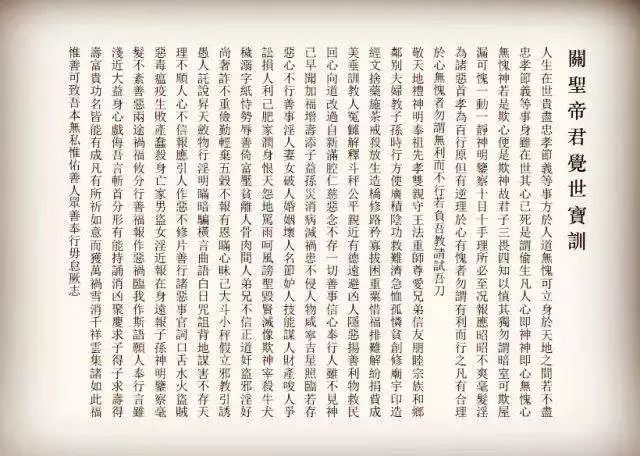 關聖帝君覺世寶訓
人生在世貴盡忠孝節義等事方於人道無愧可立身於天地之間若不盡
忠孝節義等事身雖在世其心已死是謂偷生凡人心即神神即心無愧心
無愧神若是欺心便是欺神故君子三畏四知以慎其獨勿謂暗室可欺屋
漏可愧一動一靜神明鑒察十目十手理所必至況報應昭昭不爽毫髮淫
為諸惡首孝為百行原但有逆理於心有愧者勿謂有利而行之凡有合理
於心無愧者勿謂無利而不行若負吾教請試吾刀
敬天地禮神明奉祖先孝雙親守王法重師尊愛兄弟信友朋睦宗族和鄉
鄰別夫婦教子孫時行方便廣積陰功救難濟急恤孤憐貧創修廟宇印造
經文捨藥施茶戒殺放生造橋修路矜寡拔困重粟惜福排難解紛捐貲成
美垂訓教人冤讎解釋斗秤公平親近有德遠避凶人隱惡揚善利物救民
回心向道改過自新滿腔仁慈惡念不存一切善事信心奉行人雖不見神
已早聞加福增壽添子益孫災消病減禍患不侵人物咸寧吉星照臨若存
惡心不行善事淫人妻女破人婚姻壞人名節妒人技能謀人財產唆人爭
訟損人利己肥家潤身恨天怨地罵雨呵風謗聖毀賢滅像欺神宰殺牛犬
穢溺字紙恃勢辱善倚富壓貧離人骨肉間人弟兄不信正道奸盜邪淫好
尚奢詐不重儉勤輕棄五穀不報有恩瞞心昧己大斗小秤假立邪教引誘
愚人託說昇天斂物行淫明瞞暗騙橫言曲語白日咒詛背地謀害不存天
理不順人心不信報應引人作惡不修片善行諸惡事官詞口舌水火盜賊
惡毒瘟疫生敗產蠢殺身亡家男盜女淫近報在身遠報子孫神明鑒察毫
髮不紊善惡兩途禍福攸分行善福報作惡禍臨我作斯語願人奉行言雖
淺近大益身心戲侮吾言斬首分形有能持誦消凶聚慶求子得子求壽得
壽富貴功名皆能有成凡有所祈如意而獲萬禍雪消千祥雲集諸如此福
惟善可致吾本無私惟佑善人眾善奉行毋怠厥志